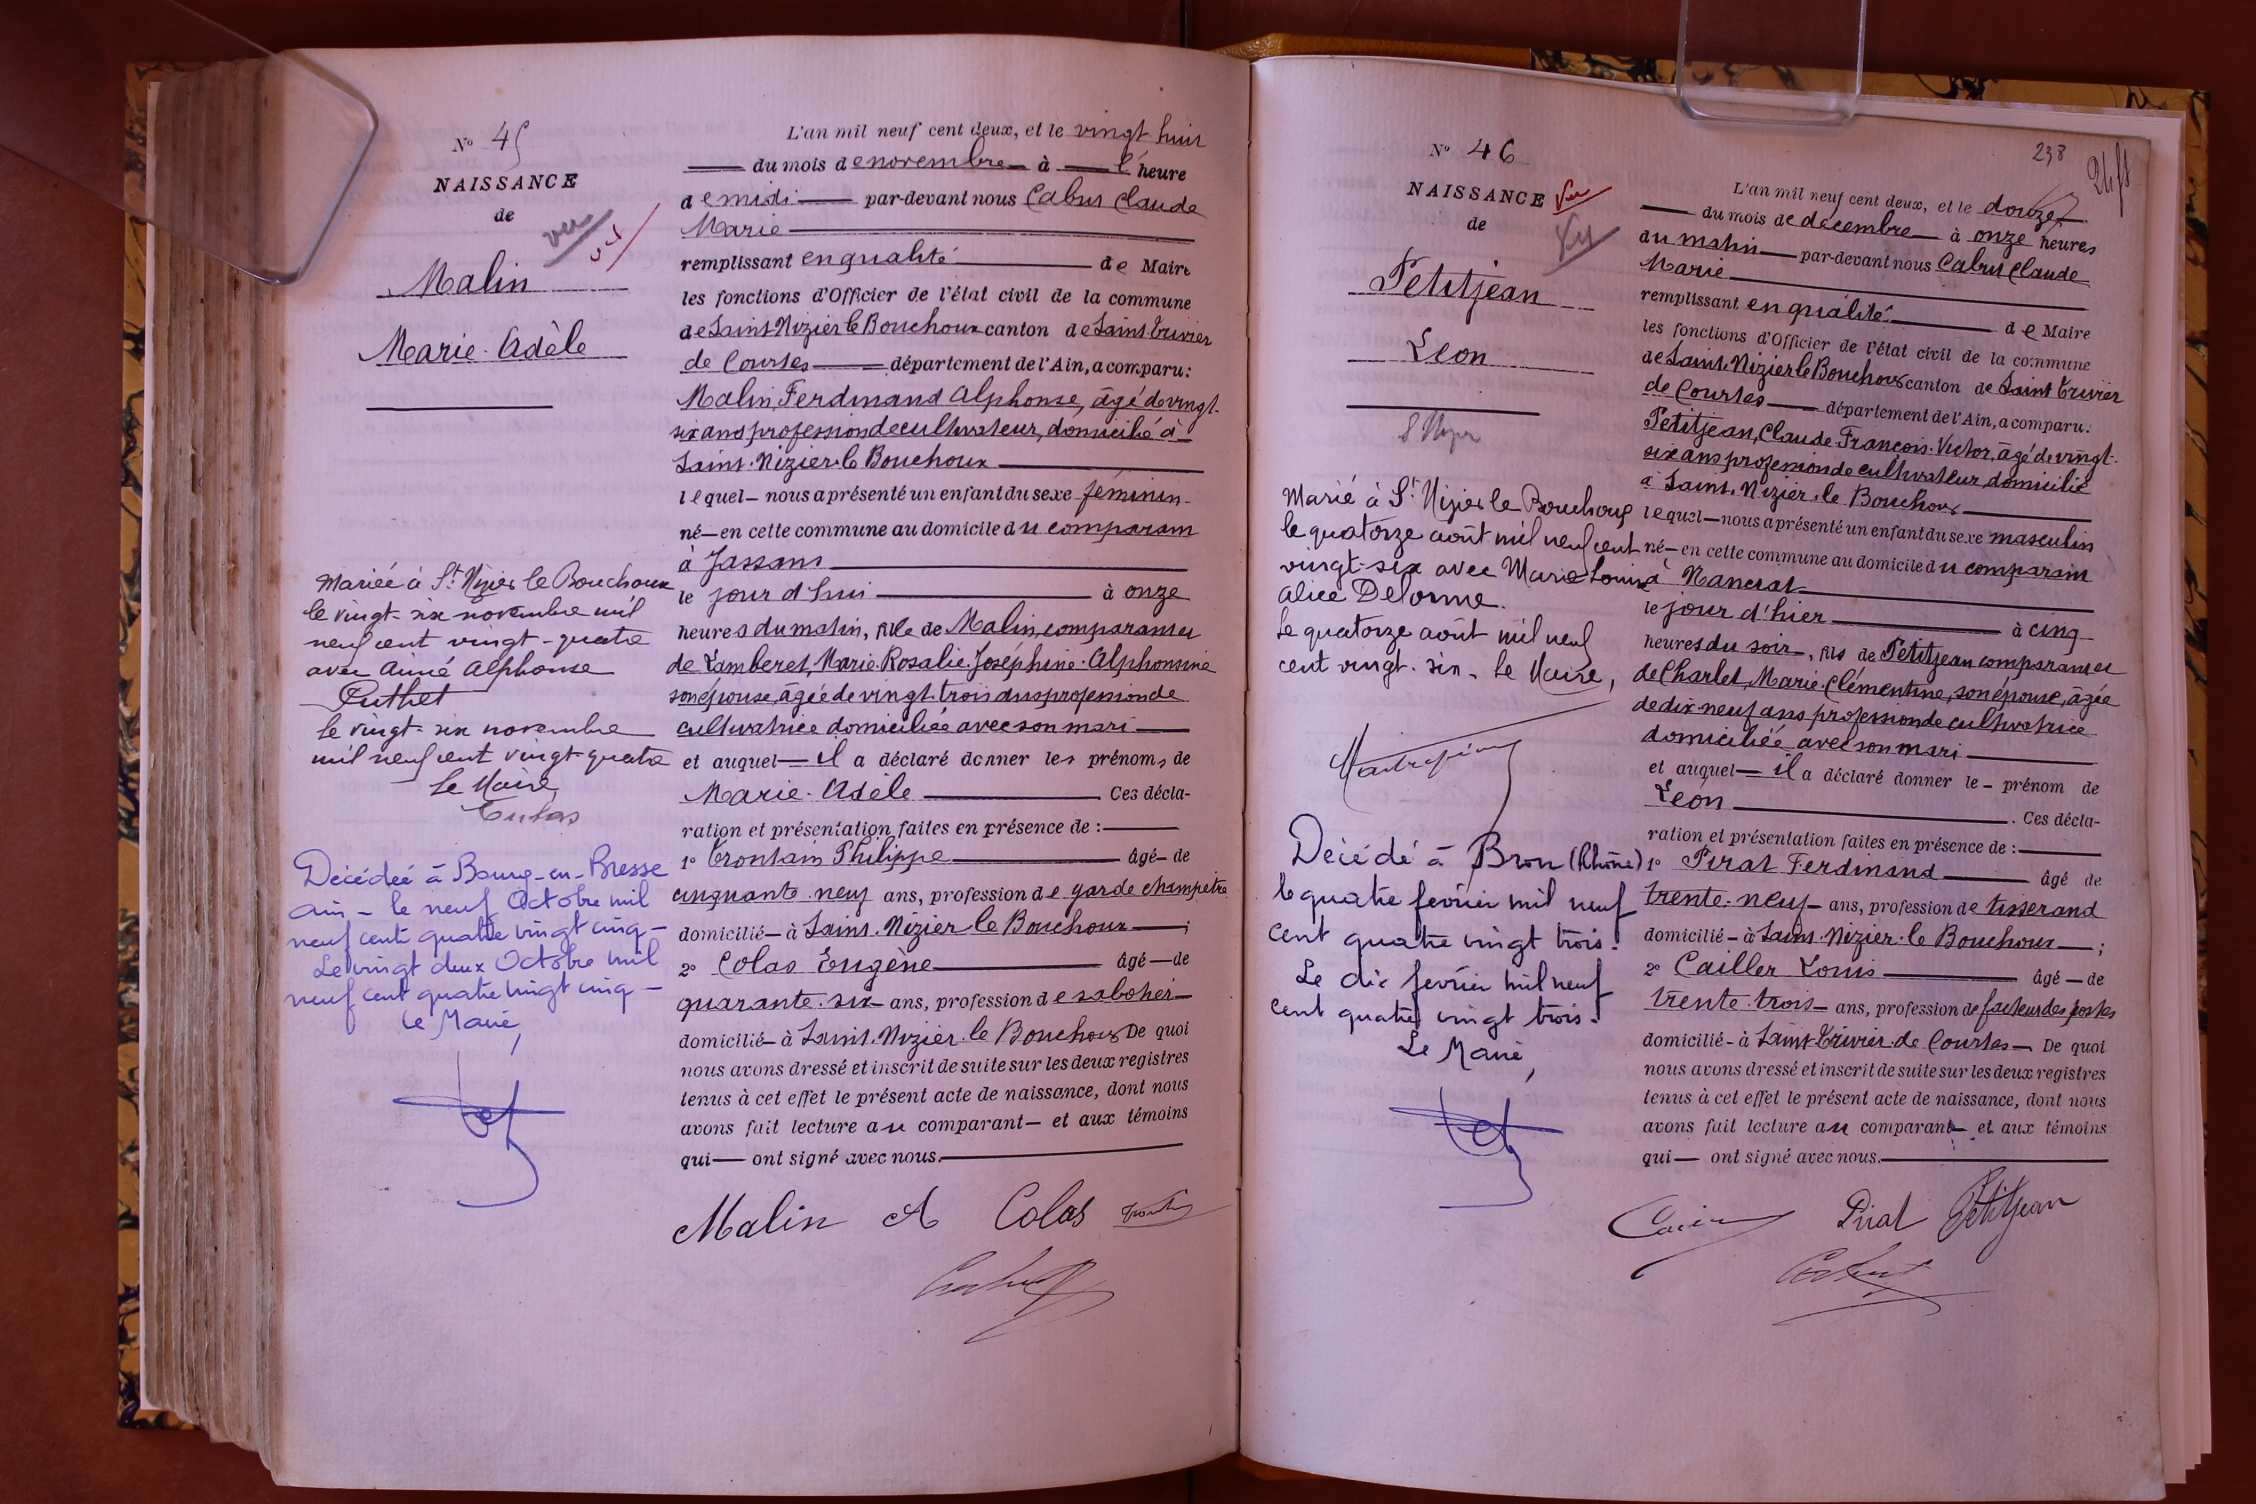 N° 45
NAISSANCE
de
vu
Malin
Marie-Adèle
Mariée à St Nizier le Bouchoux
le vingt-six novembre mil
neuf cent vingt-quatre
avec Aimé Alphonse
Puthet
le vingt-six novembre
mil neuf cent vingt-quatre
Le Maire
Décédée à Bourg-en-Bresse
Ain - le neuf Octobre mil
neuf cent quatre vingt cinq -
Le vingt deux Octobre mil
neuf cent quatre vingt cinq -
Le Maire,
L'an mil neuf cent deux, et le vingt huit
du mois de novembre à l'heure
de midi par-devant nous Cabut Claude
Marie
remplissant en qualité de Maire
les fonctions d'Officier de l'état civil de la commune
de Saint-Nizier le Bouchoux canton de Saint Trivier
de Courtes département de l'Ain, a comparu:
Malin, Ferdinand Alphonse, âgé de vingt-
six ans profession de cultivateur, domicilié à
Saint-Nizier-le Bouchoux
lequel nous a présenté un enfant du sexe féminin
né en cette commune au domicile du comparant
à Jassans
le jour d'hui à onze
heures du matin, fille de Malin, comparant et
de Lamberet, Marie-Rosalie-Joséphine-Alphonsine
son épouse, âgée de vingt-trois ans profession de
cultivatrice domiciliée avec son mari
et auquel il a déclaré donner les prénoms de
Marie-Adèle Ces décla-
ration et présentation faites en présence de :
1° Trontain Philippe âgé de
cinquante-neuf ans, profession de garde champêtre
domicilié à Saint-Nizier-le Bouchoux ;
2° Colas Eugène âgé de
quarante-six ans, profession de sabotier
domicilié à Saint-Nizier-le Bouchoux De quoi
nous avons dressé et inscrit de suite sur les deux registres
tenus à cet effet le présent acte de naissance, dont nous
avons fait lecture au comparant et aux témoins
qui ont signé avec nous.
Malin A Colas
N° 46
NAISSANCE
de
Vu
Petitjean
Léon
S Nizier
Marié à St Nizier le Bouchoux
le quatorze août mil neuf cent
vingt-six avec Marie Louise
Alice Delorme.
Le quatorze août mil neuf
cent vingt-six - Le Maire,
Décédé à Bron (Rhône)
le quatre février mil neuf
cent quatre vingt trois.
Le dix février mil neuf
cent quatre vingt trois.
Le Maire,
238
L'an mil neuf cent deux, et le douze
du mois de décembre à onze heures
du matin par-devant nous Cabut Claude
Marie
remplissant en qualité de Maire
les fonctions d'Officier de l'état civil de la commune
de Saint-Nizier le Bouchoux canton de Saint Trivier
de Courtes département de l'Ain, a comparu:
Petitjean, Claude-François-Victor, âgé de vingt-
six ans profession de cultivateur domicilié
à Saint-Nizier-le Bouchoux
lequel nous a présenté un enfant du sexe masculin
né en cette commune au domicile du comparant
à Mancrat
le jour d'hier à cinq
heures du soir, fils de Petitjean comparant et
de Charlet, Marie-Clémentine, son épouse, âgée
de dix-neuf ans profession de cultivatrice
domiciliée avec son mari
et auquel il a déclaré donner le prénom de
Léon . Ces décla-
ration et présentation faites en présence de :
1° Pirat Ferdinand âgé de
trente-neuf ans, profession de tisserand
domicilié à Saint-Nizier-le Bouchoux ;
2° Cailler Louis âgé de
trente-trois ans, profession de facteur des postes
domicilié à Saint-Trivier-de Courtes De quoi
nous avons dressé et inscrit de suite sur les deux registres
tenus à cet effet le présent acte de naissance, dont nous
avons fait lecture au comparant et aux témoins
qui ont signé avec nous.
Pirat Petitjean